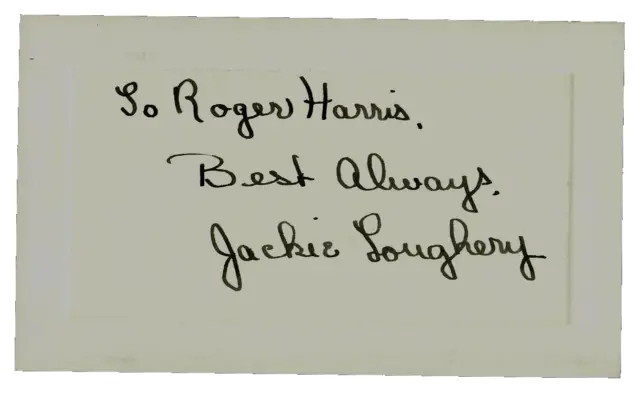 To Roger Harris.
Best Always.
Jackie Loughery